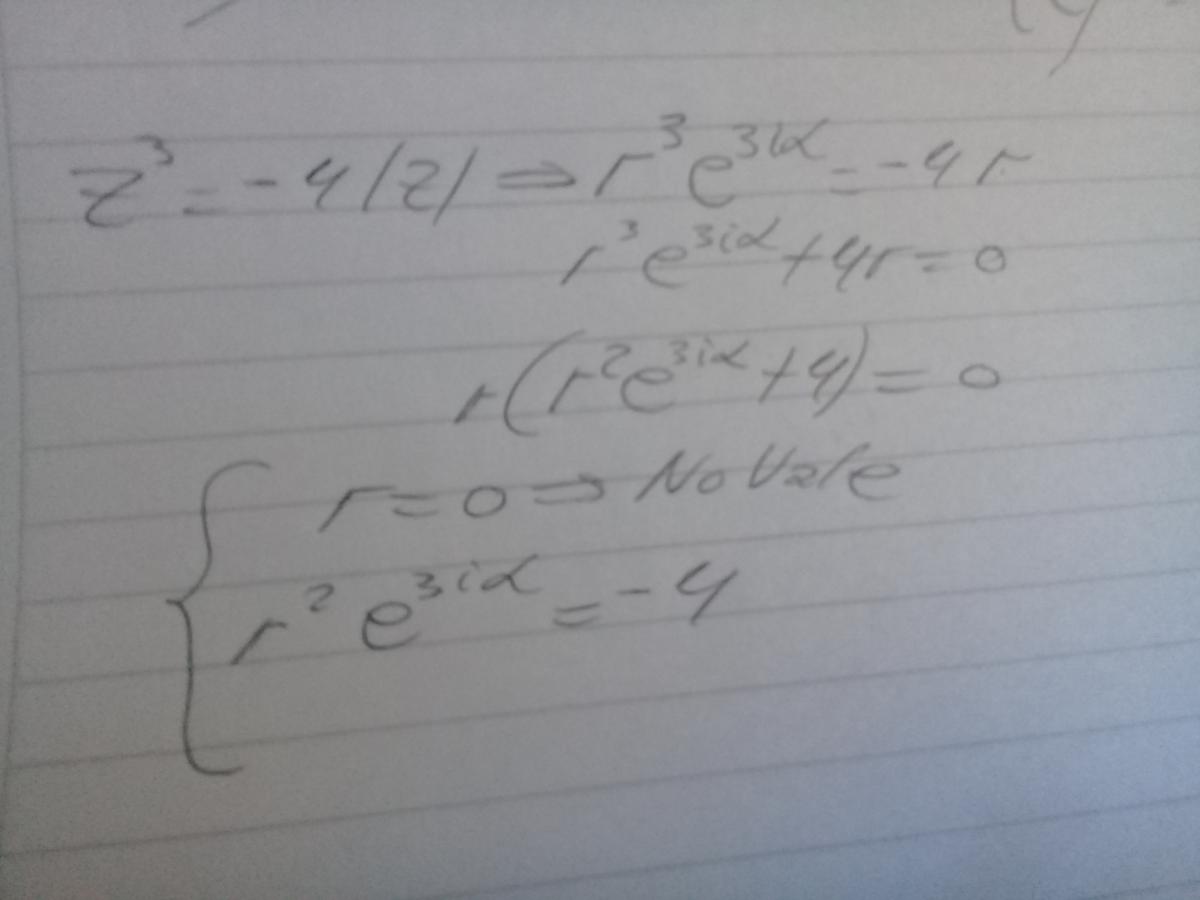 z³ = -4|z| ⇒ r³e^{3iα} = -4r
r³e^{3iα} + 4r = 0
r(r²e^{3iα} + 4) = 0
{ r = 0 ⇒ No Vale
r²e^{3iα} = -4